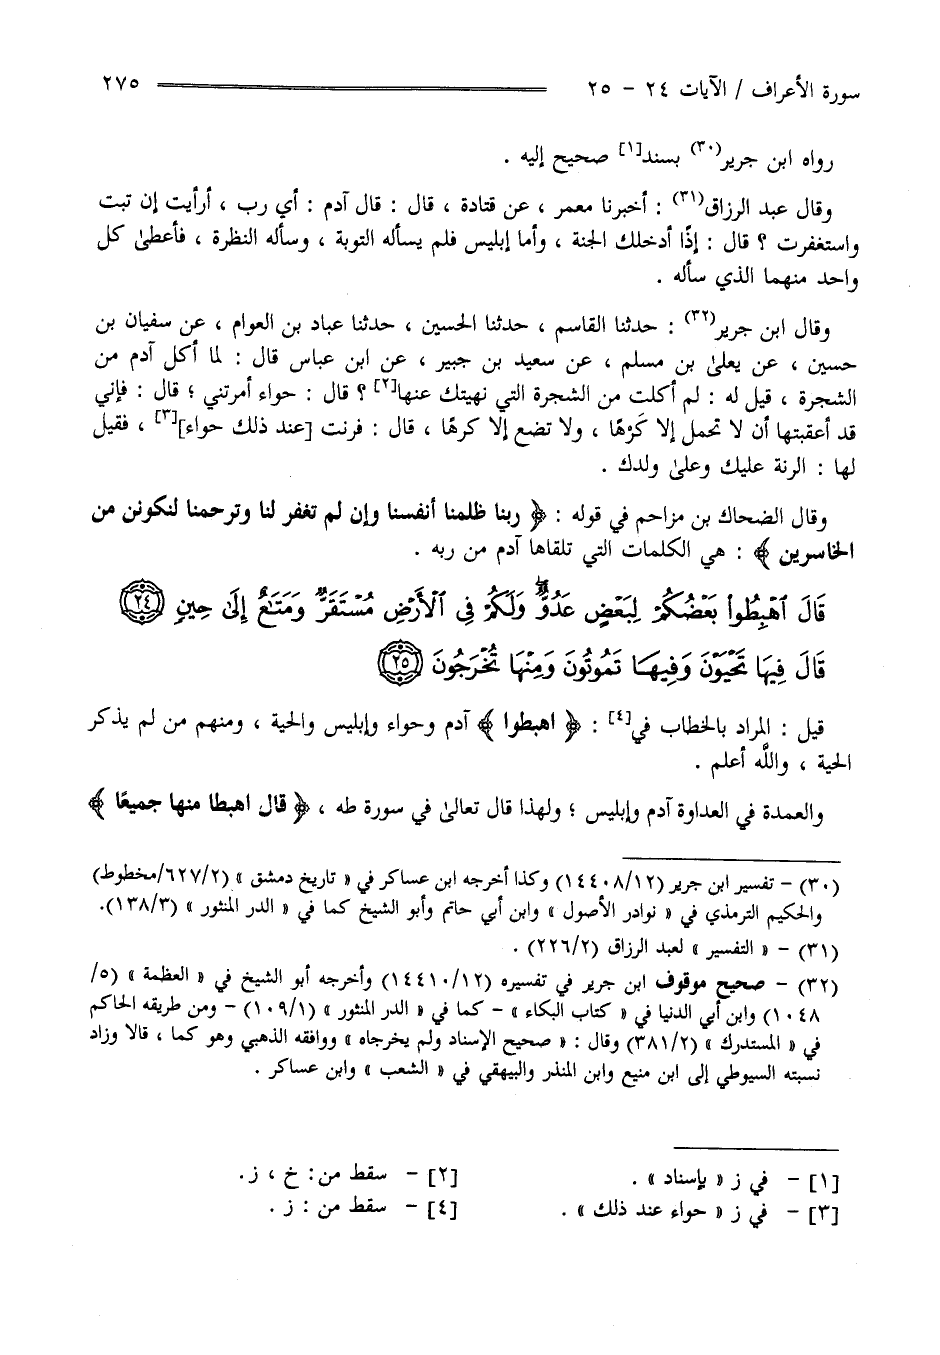 سورة الأعراف / الآيات ٢٤ - ٢٥ ٢٧٥
رواه ابن جرير(٣٠) بسند[١] صحيح إليه .
وقال عبد الرزاق(٣١) : أخبرنا معمر ، عن قتادة ، قال : قال آدم : أي رب ، أرأيت إن تبت
واستغفرت ؟ قال : إذًا أدخلك الجنة ، وأما إبليس فلم يسأله التوبة ، وسأله النظرة ، فأعطىٰ كل
واحد منهما الذي سأله .
وقال ابن جرير(٣٢) : حدثنا القاسم ، حدثنا الحسين ، حدثنا عباد بن العوام ، عن سفيان بن
حسين ، عن يعلىٰ بن مسلم ، عن سعيد بن جبير ، عن ابن عباس قال : لما أكل آدم من
الشجرة ، قيل له : لم أكلت من الشجرة التي نهيتك عنها[٢] ؟ قال : حواء أمرتني ؛ قال : فإني
قد أعقبتها أن لا تحمل إلا كَرْهًا ، ولا تضع إلا كرهًا ، قال : فرنت [عند ذلك حواء][٣] ، فقيل
لها : الرنة عليك وعلىٰ ولدك .
وقال الضحاك بن مزاحم في قوله : ﴿ ربنا ظلمنا أنفسنا وإن لم تغفر لنا وترحمنا لنكونن من
الخاسرين ﴾ : هي الكلمات التي تلقاها آدم من ربه .
قَالَ ٱهْبِطُواْ بَعْضُكُمْ لِبَعْضٍ عَدُوٌّ ۖ وَلَكُمْ فِى ٱلْأَرْضِ مُسْتَقَرٌّ وَمَتَـٰعٌ إِلَىٰ حِينٍ ٢٤
قَالَ فِيهَا تَحْيَوْنَ وَفِيهَا تَمُوتُونَ وَمِنْهَا تُخْرَجُونَ ٢٥
قيل : المراد بالخطاب في[٤] : ﴿ اهبطوا ﴾ آدم وحواء وإبليس والحية ، ومنهم من لم يذكر
الحية ، واللَّه أعلم .
والعمدة في العداوة آدم وإبليس ؛ ولهذا قال تعالىٰ في سورة طه ، ﴿ قال اهبطا منها جميعًا ﴾
(٣٠) - تفسير ابن جرير (١٤٤٠٨/١٢) وكذا أخرجه ابن عساكر في « تاريخ دمشق » (٦٢٧/٢/مخطوط)
والحكيم الترمذي في « نوادر الأصول » وابن أبي حاتم وأبو الشيخ كما في « الدر المنثور » (١٣٨/٣).
(٣١) - « التفسير » لعبد الرزاق (٢٢٦/٢) .
(٣٢) - صحيح موقوف ابن جرير في تفسيره (١٤٤١٠/١٢) وأخرجه أبو الشيخ في « العظمة » (٥/
١٠٤٨) وابن أبي الدنيا في « كتاب البكاء » - كما في « الدر المنثور » (١٠٩/١) - ومن طريقه الحاكم
في « المستدرك » (٣٨١/٢) وقال : « صحيح الإسناد ولم يخرجاه » ووافقه الذهبي وهو كما ، قالا وزاد
نسبته السيوطي إلى ابن منيع وابن المنذر والبيهقي في « الشعب » وابن عساكر .
[١] - في ز « بإسناد » . [٢] - سقط من: خ ، ز.
[٣] - في ز « حواء عند ذلك » . [٤] - سقط من : ز .